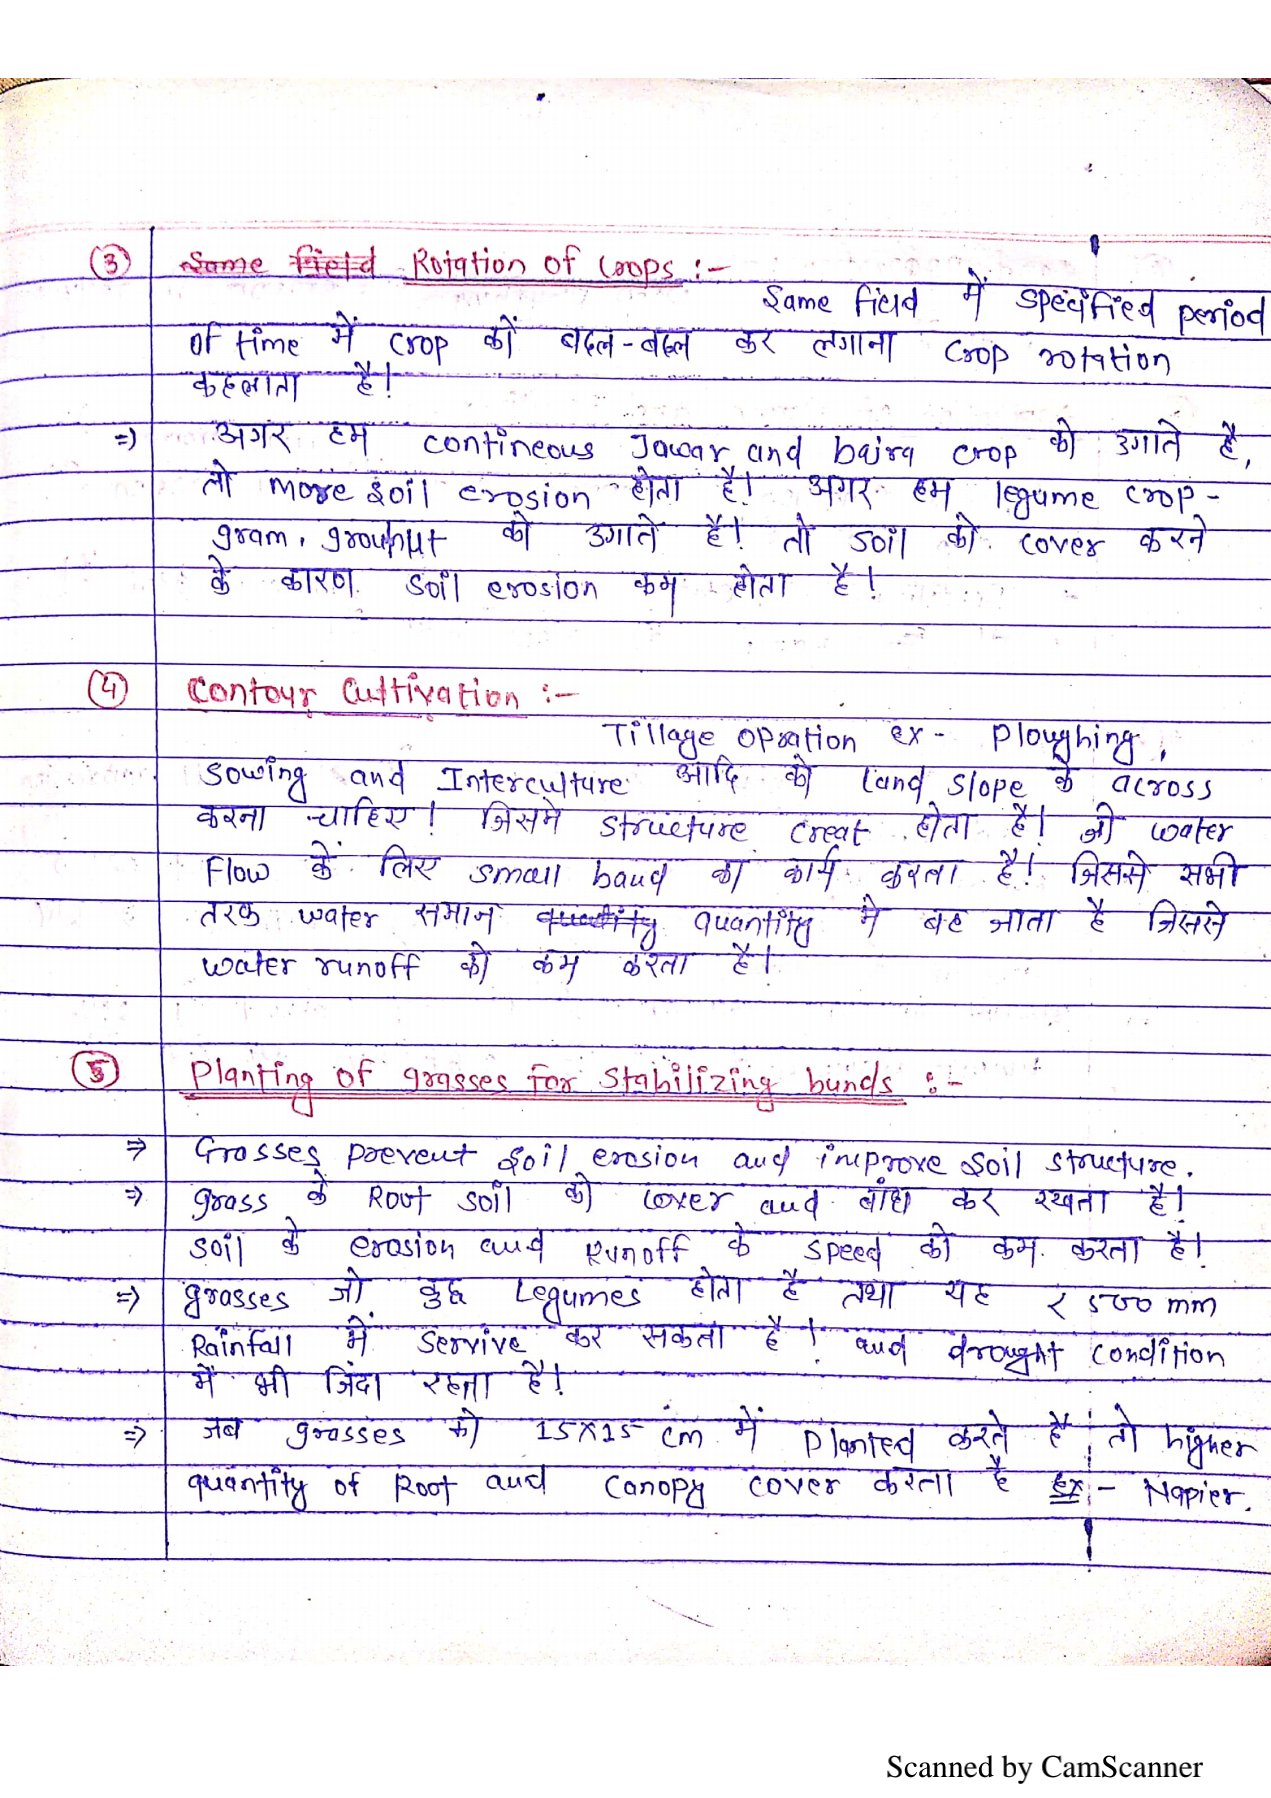 ③ Same field Rotation of Crops :-
Same field में specified period
of time में crop को बदल-बदल कर लगाना crop rotation
कहलाता है!
=) अगर हम contineous Jawar and bajra crop को उगाते है,
तो more soil erosion होता है! अगर हम legume crop -
gram, groupnut को उगाते है! तो soil को cover करने
के कारण soil erosion कम होता है!
④ Contour Cultivation :-
Tillage opration ex - Ploughing,
sowing and Interculture आदि को land slope के across
करना चाहिए! जिसमे structure creat होता है! जो water
Flow के लिए small baud का कार्य करता है! जिससे सभी
तरफ water समान quantity quantity मे बह जाता है जिससे
water runoff को कम करता है!
⑤ Planting of grasses for stabilizing bunds :-
=> Grasses prevent soil erosion and improve soil structure.
=> grass के Root soil को cover and बांध कर रखता है!
soil के erosion and Runoff के speed को कम करता है!
=> grasses जो कुछ Legumes होता है तथा यह < 500 mm
Rainfall में servive कर सकता है! and drought condition
में भी जिंदा रहता है!
=> जब grasses को 15x15 cm में planted करते है, तो higher
quantity of Root and canopy cover करता है Ex - Napier.
Scanned by CamScanner